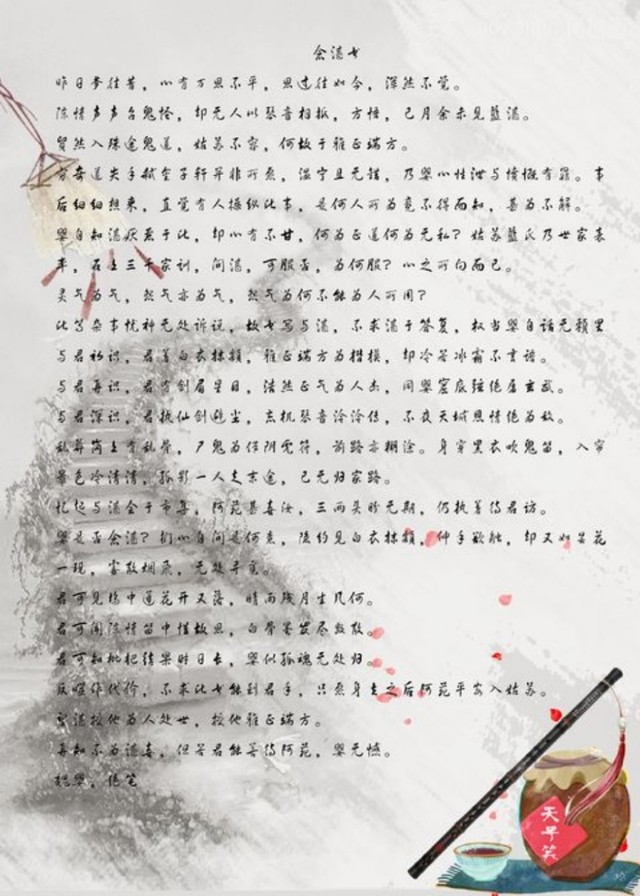 念湛书
昨日梦往昔，心有万思不平，思过往如今，浑然不觉。
陈情声声召鬼怪，却无人以琴音相抵，方悟，已月余未见蓝湛。
贸然入殊途鬼道，姑苏不容，何故于雅正端方。
穷奇道失手弑金子轩并非可意，温宁且无错，乃婴心性泄与愤慨有罪。事
后细细想来，直觉有人操纵此事，是何人可为竟不得而知，甚为不解。
婴自知湛厌恶于此，却心有不甘，何为正道何为无私？姑苏蓝氏乃世家表
率，君主三千家训，问湛，可服否，为何服？心之可向而已。
灵气为气，怨气亦为气，怨气为何不能为人可用？
此等杂事忧神无处诉说，故书写与湛，不求湛于答复，权当婴自话无赖里
与君初识，君着白衣抹额，雅正端方为楷模，却冷若冰霜不言语。
与君再识，君有剑眉星目，浩然正气为人杰，同婴窟底强绝屠玄武。
与君深识，君执仙剑避尘，忘机琴音泠泠传，不夜天城恩情绝为敌。
乱葬岗上有乱骨，尸鬼为伴阴虎符，前路亦糊涂。身穿黑衣吹鬼笛，入帘
景色冷清清，孤影一人走末途，已无归家路。
忆起与湛会于市集，阿苑甚喜汝，三两头盼无期，仍执着待君访。
婴是否念湛？扪心自问是何意，隐约见白衣抹额，伸手欲触，却又如昙花
一现，雾散烟灭，无处寻觅。
君可见塘中莲花开又落，晴雨残月生几何。
君可闻陈情笛中惜故恩，白骨萎发尽数散。
君可知枇杷结果昨日去，婴似孤魂无处归。
反噬作代价，不求此书能到君手，只愿身去之后阿苑平安入姑苏。
望湛授他为人处世，授他雅正端方。
吾知不为湛喜，但若君能善待阿苑，婴无憾。
魏婴，绝笔
天子笑